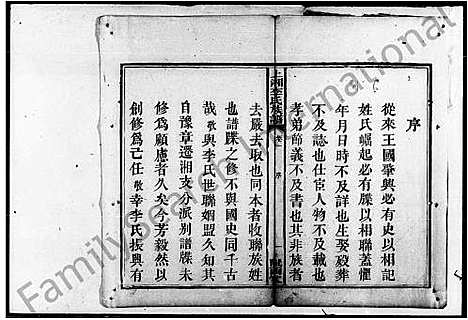 序
從來王國肇興必有史以相記
姓氏崛起必有牒以相聯蓋懼
年月日時不及詳也生娶歿葬
不及誌也仕臣人物不及載也
孝弟節義不及書也其非族者
上湘李氏族譜
序
一
去嚴去取也同本者收聯族姓
也譜牒之修不與國史同千古
哉敬與李氏世聯姻盟久知其
自豫章遷湘支分派別譜牒未
修為顧慮者久矣今芳毅然以
創修為己任敬幸李氏振興有
FamilySearch International